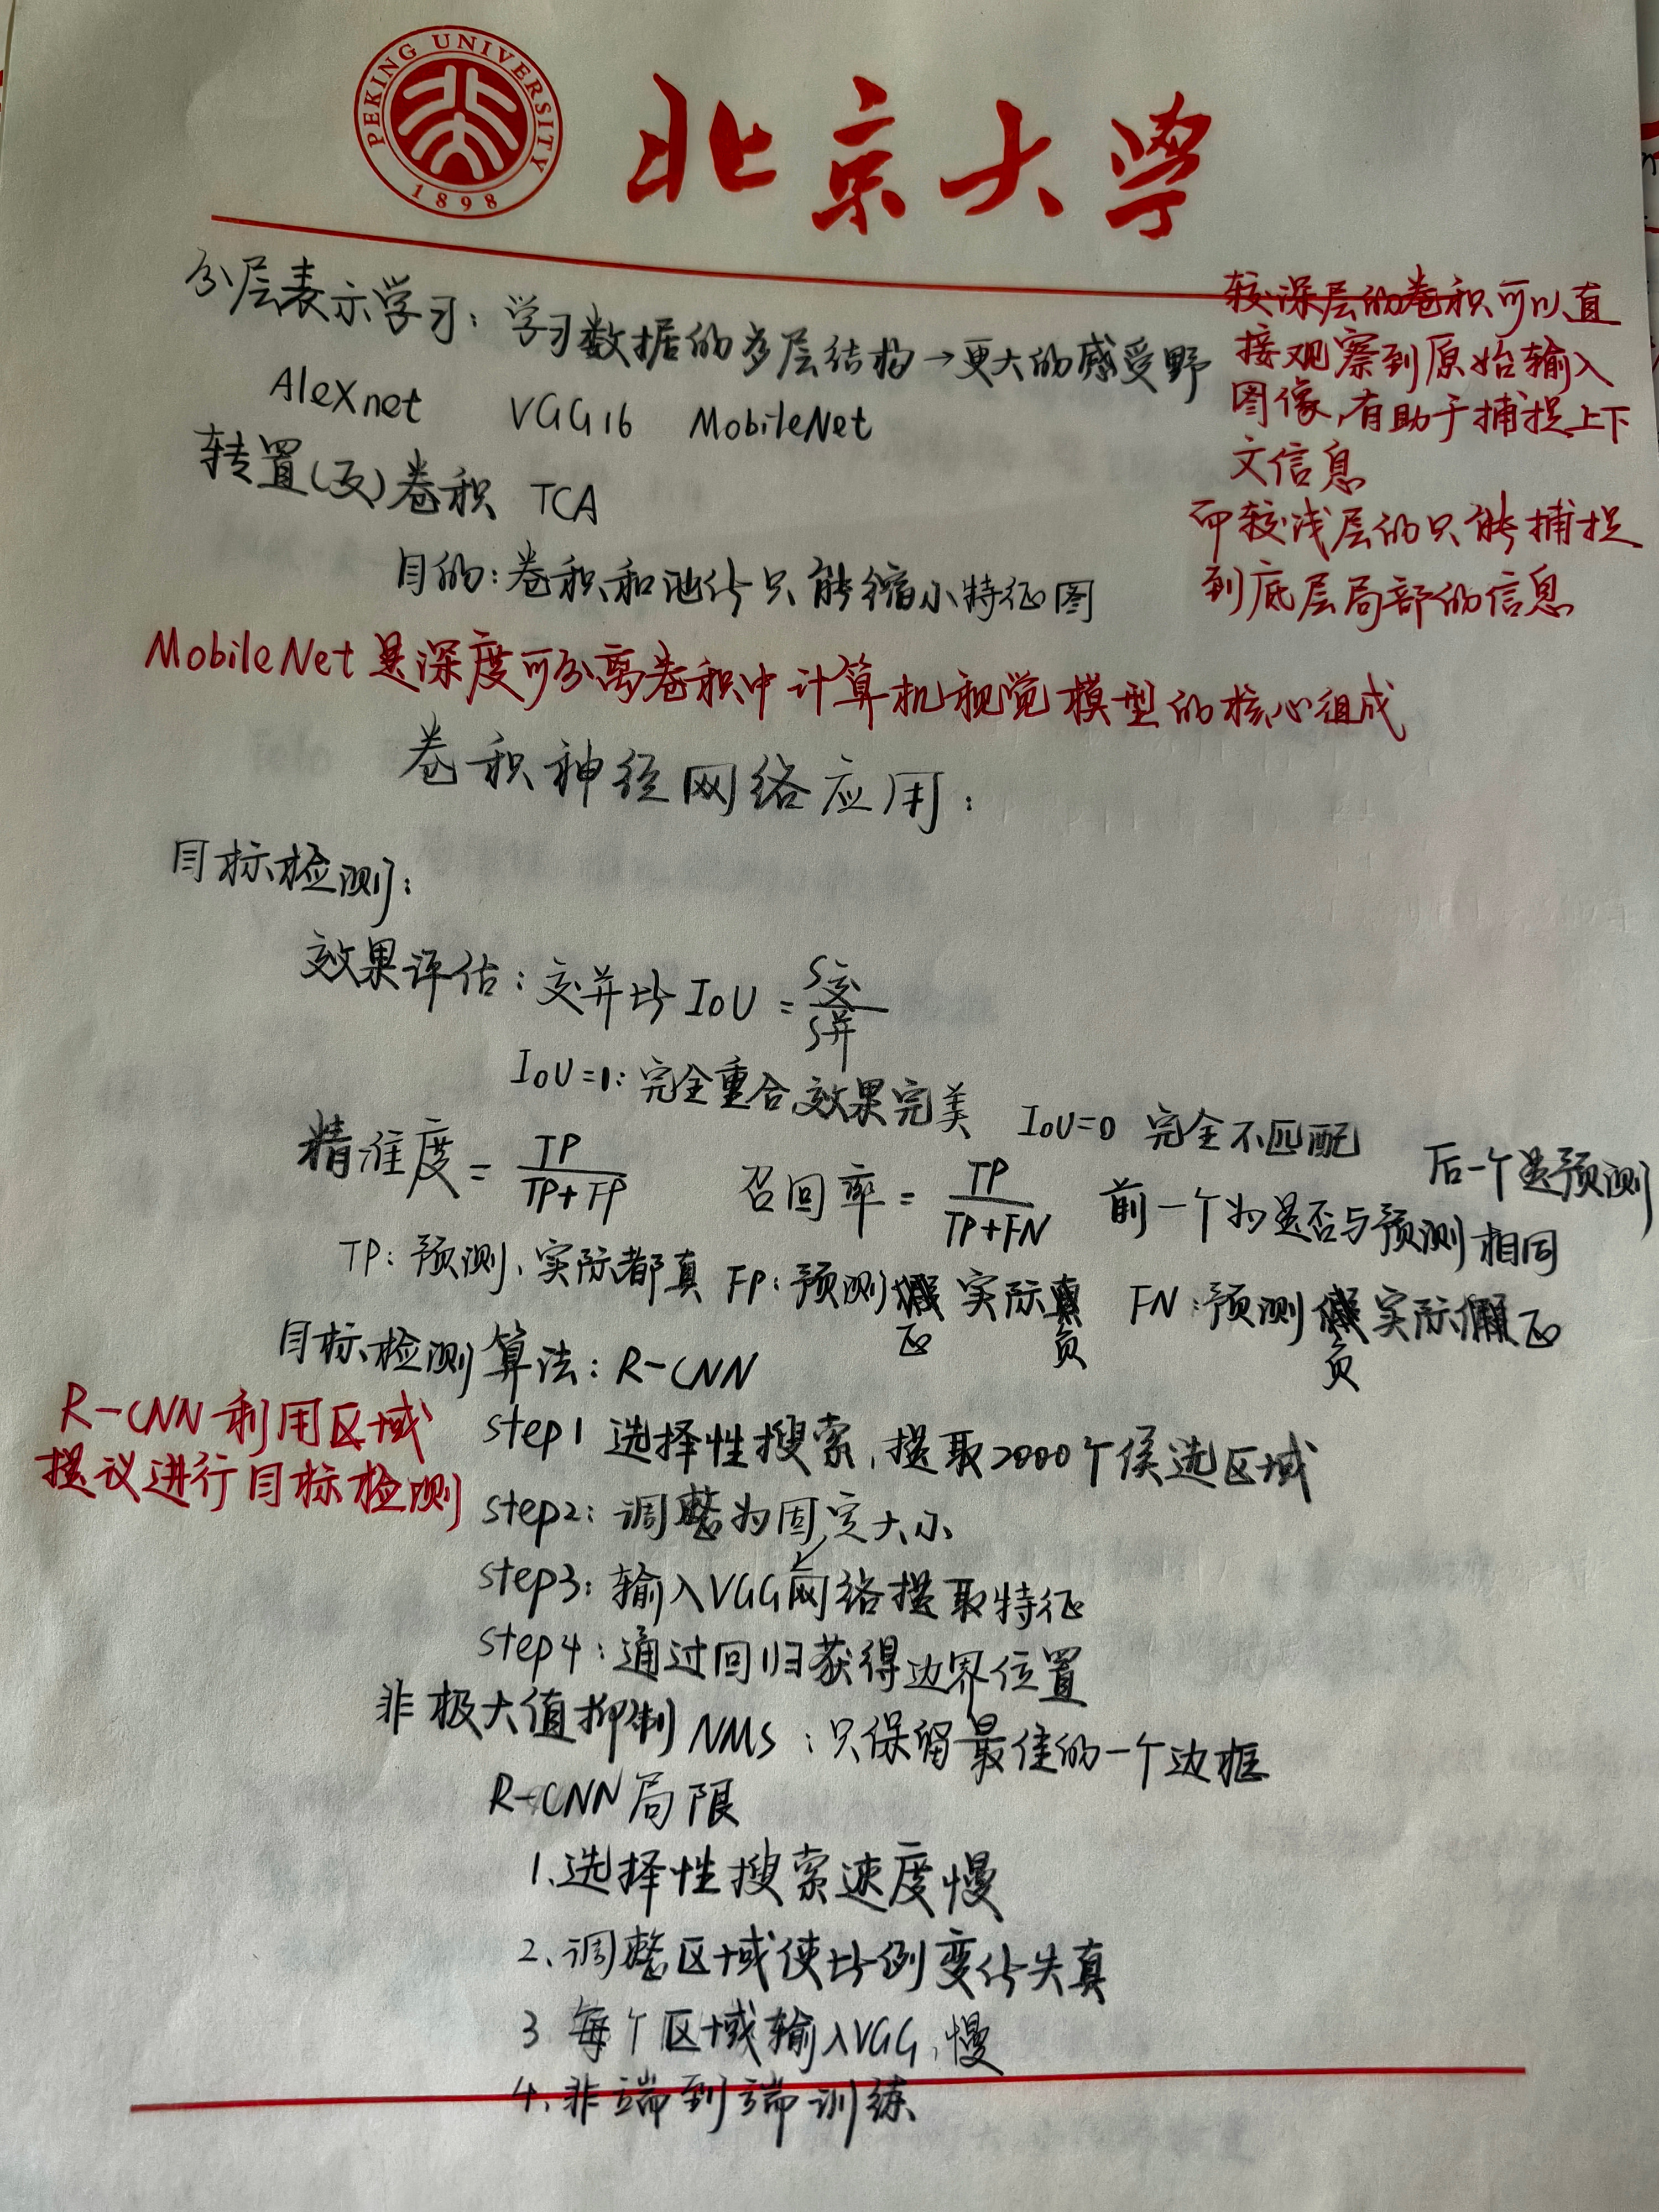 PEKING UNIVERSITY
1898
北京大学
分层表示学习：学习数据的多层结构→更大的感受野
AleXnet VGG16 MobileNet
较深层的卷积可以直
接观察到原始输入
图像，有助于捕捉上下
文信息
而较浅层的只能捕捉
到底层局部的信息
转置(反)卷积 TCA
目的：卷积和池化只能缩小特征图
MobileNet是深度可分离卷积中计算机视觉模型的核心组成
卷积神经网络应用：
目标检测：
效果评估：交并比 IoU = S交/S并
IoU=1：完全重合，效果完美 IoU=0 完全不匹配
精准度 = TP/TP+FP 召回率 = TP/TP+FN 前一个为是否与预测相同
后一个是预测
TP：预测、实际都真 FP：预测正 实际负 FN：预测负 实际正
目标检测算法：R-CNN
R-CNN利用区域
提议进行目标检测
step1 选择性搜索，提取2000个候选区域
step2：调整为固定大小
step3：输入VGG网络提取特征
step4：通过回归获得边界位置
非极大值抑制NMS：只保留最佳的一个边框
R-CNN局限
1、选择性搜索速度慢
2、调整区域使比例变化失真
3 每个区域输入VGG，慢
4、非端到端训练